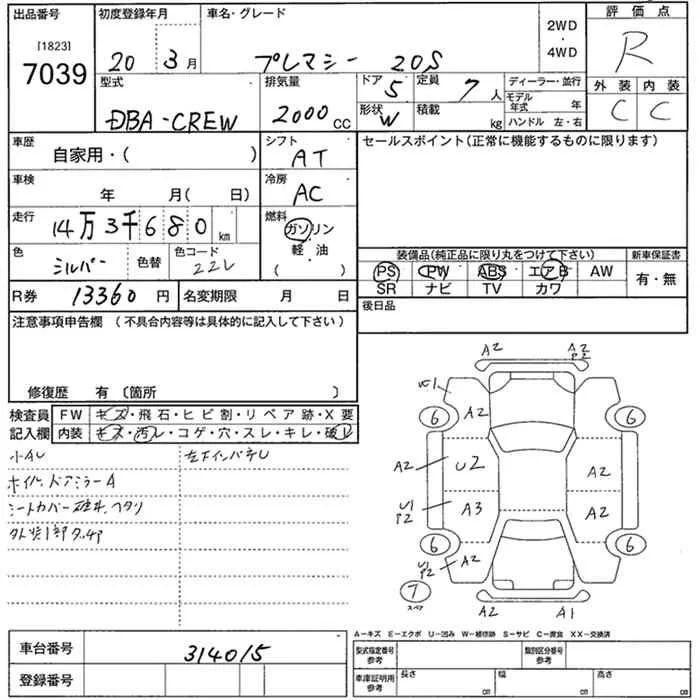 出品番号 初度登録年月 車名・グレード 評価点
[1823]
7039
20 3月 プレマシー 20S
2WD
・
4WD
R
型式 排気量 ドア 定員 ディーラー・並行 外装 内装
DBA-CREW 2000CC 5 7人 モデル年式 年 C C
形状 W 積載 kg ハンドル 左・右
車歴 自家用・( ) シフト AT セールスポイント(正常に機能するものに限ります)
車検 年 月( 日) 冷房 AC
走行 14万3千680km 燃料 ガソリン
軽・油
( )
色 シルバー 色替 色コード 22L
装備品(純正品に限り丸をつけて下さい) 新車保証書
PS PW ABS エアB AW 有・無
SR ナビ TV カワ
R券 13360円 名変期限 月 日 後日品
注意事項申告欄 (不具合内容等は具体的に記入して下さい)
修復歴 有〔箇所 〕
検査員記入欄 FW キズ・飛石・ヒビ割・リペア跡・X要
内装 キズ・汚レ・コゲ・穴・スレ・キレ・破レ
小AU
ホイル、ドアミラーA
シートカバー 破れ、ヘタリ
A2 A2
P2
U1
6 A2 6
A2 U2 A2
U1
P2 A3 A2
6 U1
P2 A2 6
7
スペア
A2 A1
A-キズ E-エクボ U-凹み W-補修跡 S-サビ C-腐食 XX-交換済
車台番号 314015
登録番号
型式指定番号
参考
類別区分番号
参考
車庫証明用
参考
長さ cm 幅 cm 高さ cm